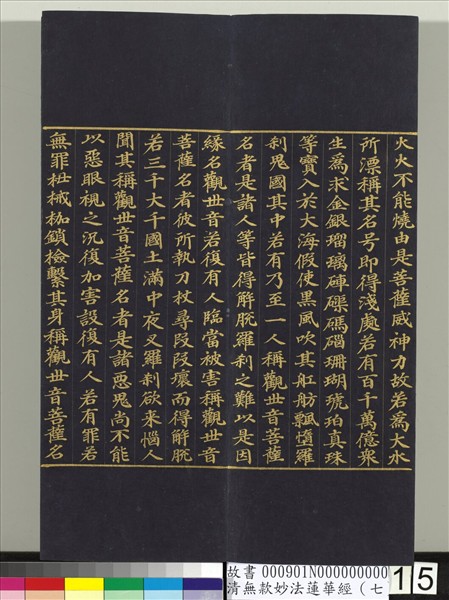 火火不能燒由是菩薩威神力故若為大水
所漂稱其名号即得淺處若有百千萬億衆
生為求金銀瑠璃硨磲碼碯珊瑚琥珀真珠
等寶入於大海假使黒風吹其舩舫飄墮羅
刹鬼國其中若有乃至一人稱觀世音菩薩
名者是諸人等皆得解脱羅刹之難以是因
緣名觀世音若復有人臨當被害稱觀世音
菩薩名者彼所執刀杖尋段段壞而得解脱
若三千大千國土滿中夜叉羅刹欲来惱人
聞其稱觀世音菩薩名者是諸惡鬼尚不能
以惡眼視之況復加害設復有人若有罪若
無罪杻械枷鎖檢繫其身稱觀世音菩薩名
故書 000901N000000000
清無款妙法蓮華經（七
15